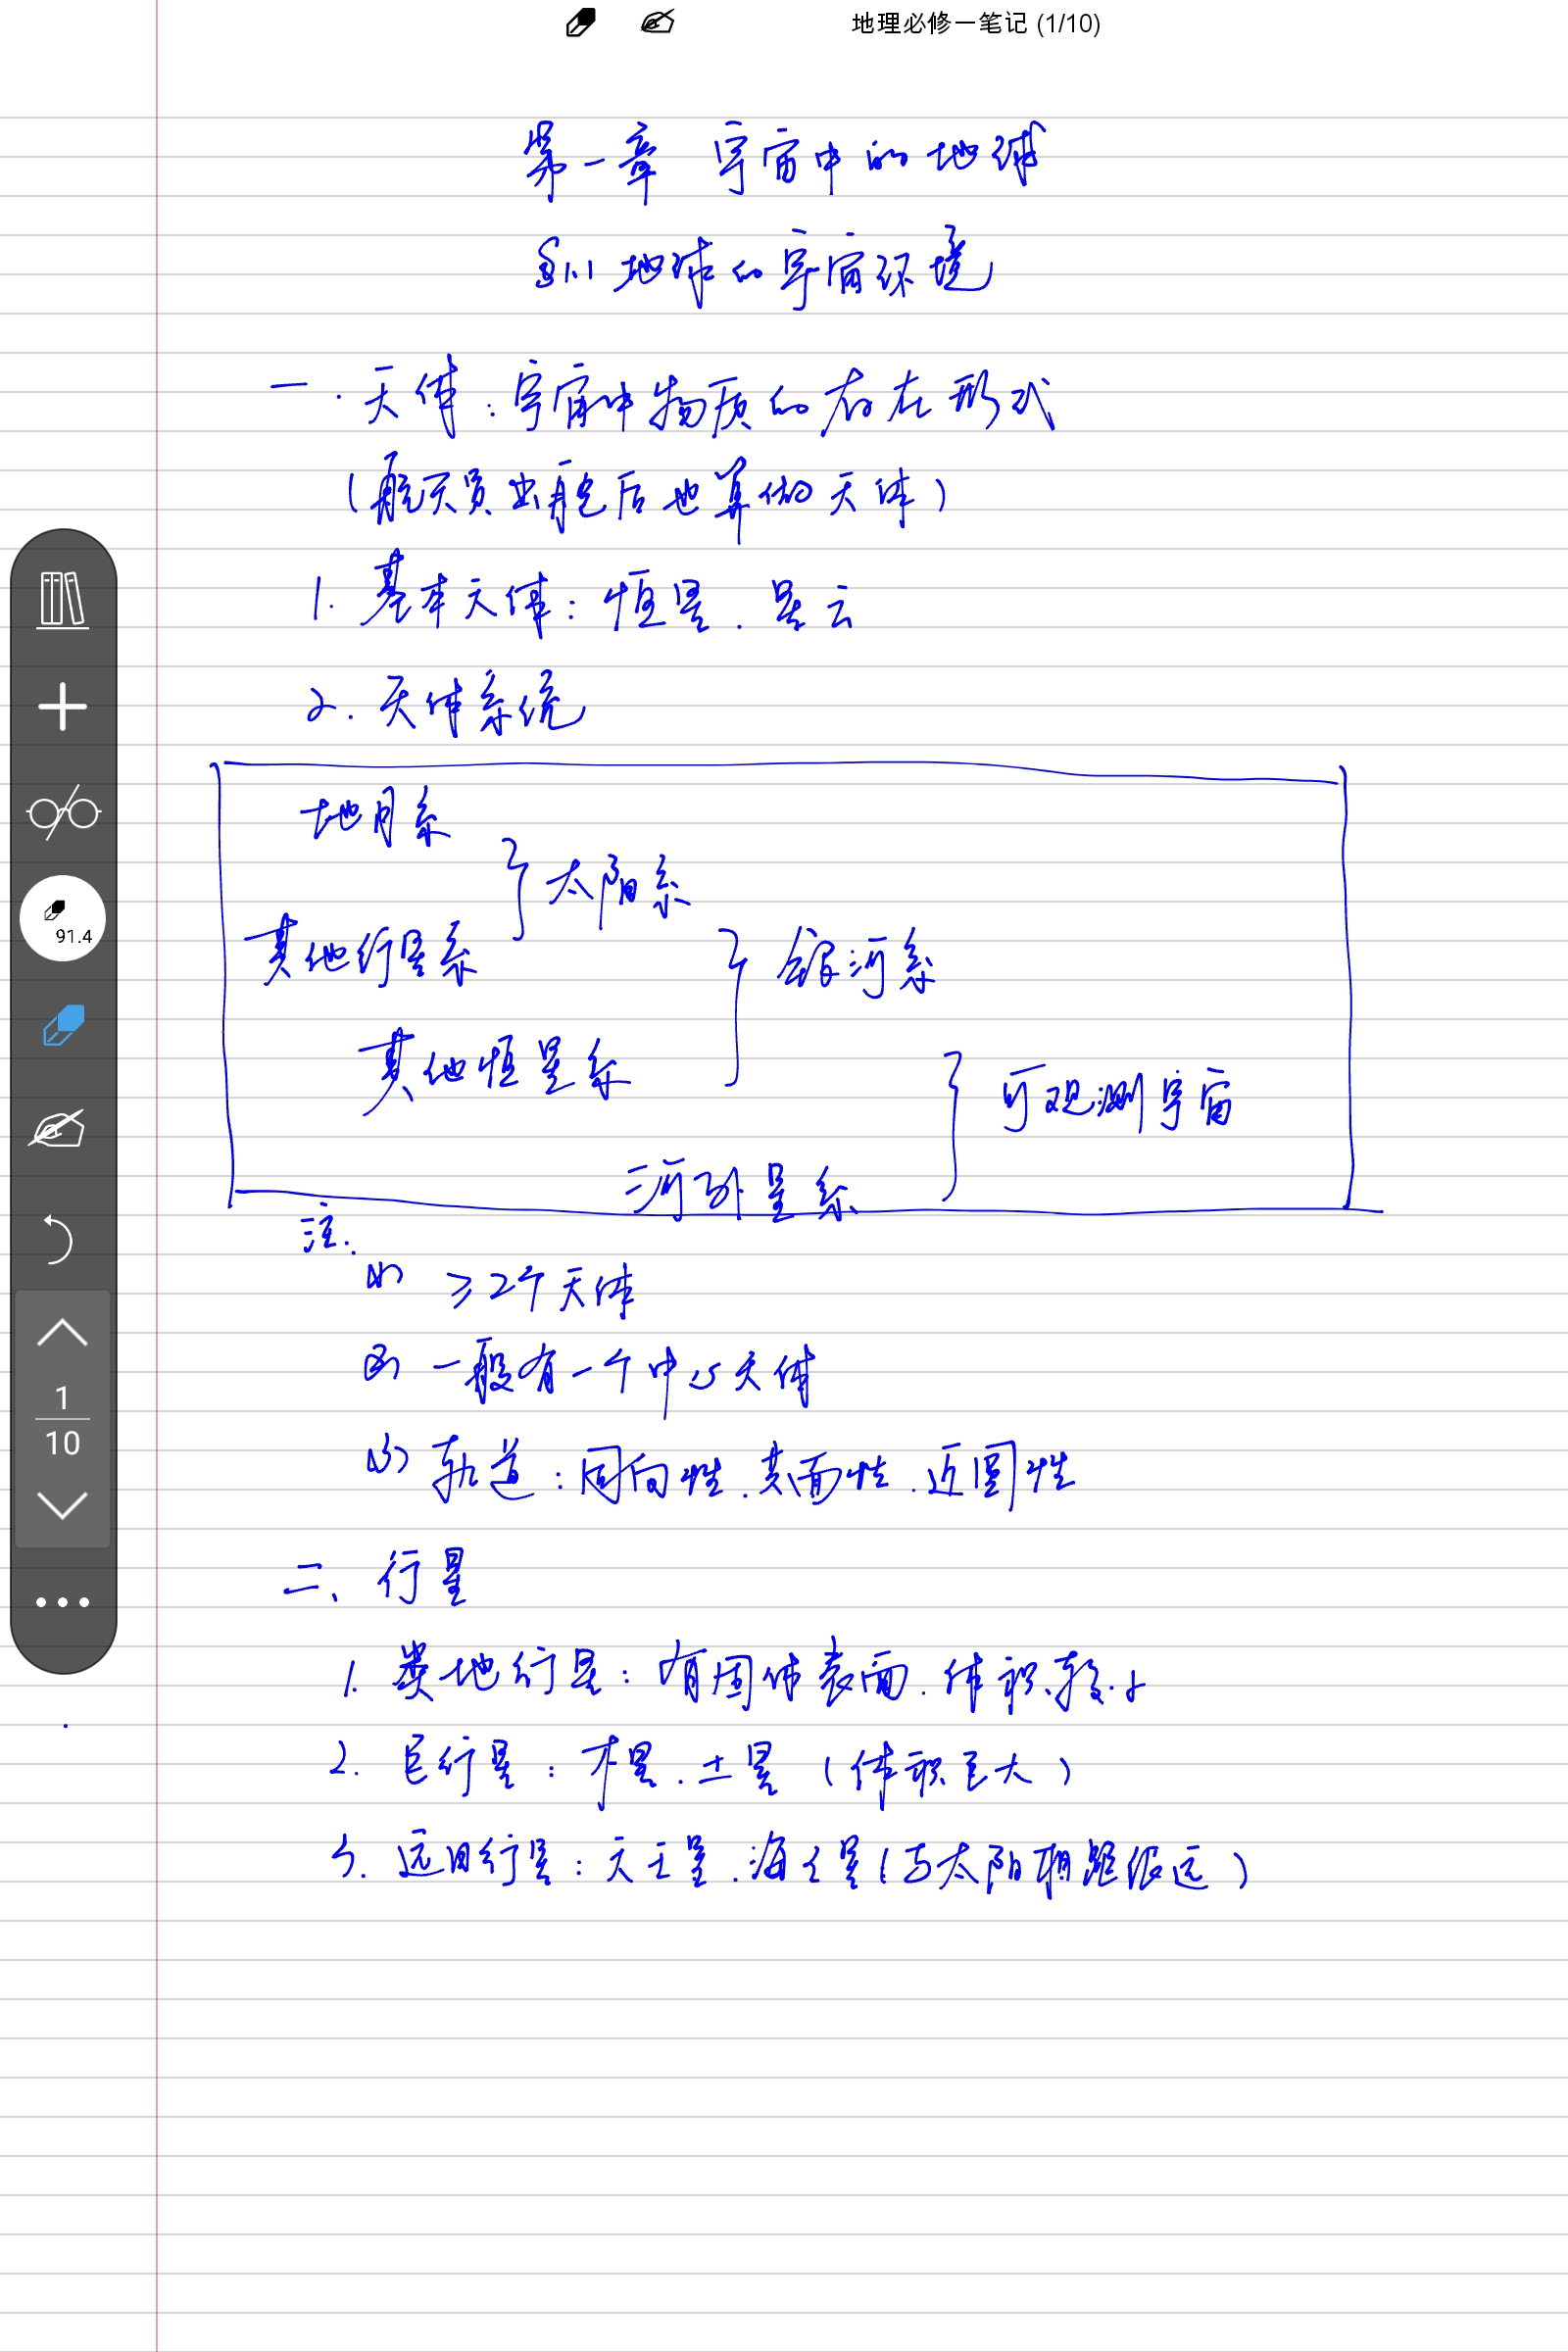 地理必修一笔记 (1/10)
第一章 宇宙中的地球
§1.1 地球的宇宙环境
一.天体:宇宙中物质的存在形式
(航天员出舱后也算做天体)
1. 基本天体:恒星.星云
2. 天体系统
地月系
太阳系
其他行星系
银河系
其他恒星系
可观测宇宙
河外星系
注.
(1) ≥2个天体
(2) 一般有一个中心天体
(3) 轨道:同向性.共面性.近圆性
二、行星
1. 类地行星:有固体表面.体积较小
2. 巨行星:木星.土星(体积巨大)
3. 远日行星:天王星.海王星(与太阳相距很远)
91.4
1
10